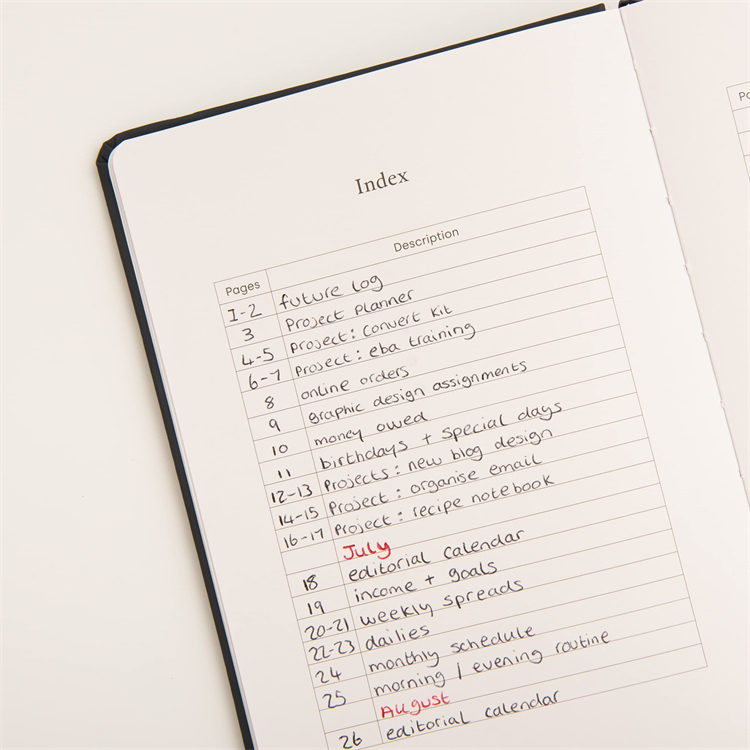 Index
Pages Description
1-2 future log
3 Project Planner
4-5 Project: convert kit
6-7 Project: eba training
8 online orders
9 graphic design assignments
10 money owed
11 birthdays + special days
12-13 Projects: new blog design
14-15 Project: organise email
16-17 Project: recipe notebook
July
18 editorial calendar
19 income + goals
20-21 weekly spreads
22-23 dailies
24 monthly schedule
25 morning / evening routine
August
26 editorial calendar